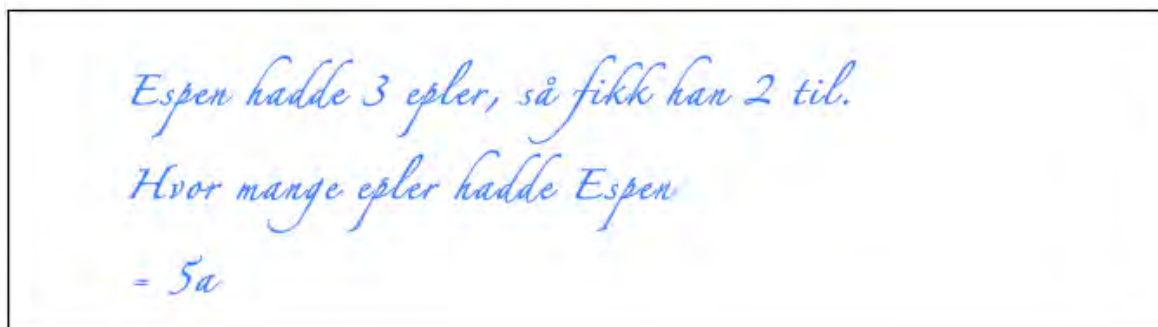 Espen hadde 3 epler, så fikk han 2 til.
Hvor mange epler hadde Espen
= 5a